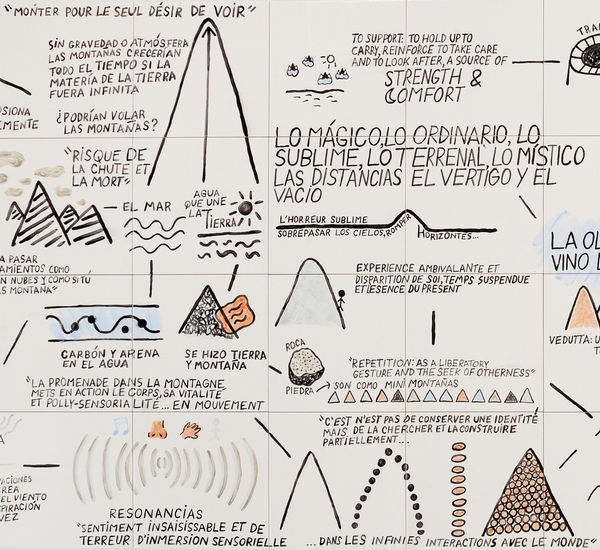 "MONTER POUR LE SEUL DÉSIR DE VOIR"
SIN GRAVEDAD O ATMÓSFERA
LAS MONTAÑAS CRECERÍAN
TODO EL TIEMPO SI LA
MATERÍA DE LA TIERRA
FUERA INFINITA
¿PODRÍAN VOLAR
LAS MONTAÑAS?
TO SUPPORT: TO HOLD UP TO
CARRY, REINFORCE TO TAKE CARE
AND TO LOOK AFTER, A SOURCE OF
STRENGTH &
COMFORT
TRA
USIONA
EMENTE
"RISQUE DE
LA CHUTE ET
LA MORT"
EL MAR
AGUA
QUE UNE
LA TIERRA
LO MÁGICO, LO ORDINARIO, LO
SUBLIME, LO TERRENAL, LO MÍSTICO
LAS DISTANCIAS EL VERTIGO Y EL
VACÍO
L'HORREUR SUBLIME
SOBREPASAR LOS CIELOS, ROMPER HORIZONTES...
LA OL
VINO D
A PASAR
AMIENTOS COMO
N NUBES Y COMO SI TÚ
S MONTAÑA"
EXPERIENCE AMBIVALANTE ET
DISPARITION DE SOI, TEMPS SUSPENDUE
ET LESENCE DU PRESENT
CARBÓN Y ARENA
EN EL AGUA
SE HIZO TIERRA
Y MONTAÑA
ROCA
PIEDRA
VEDUTTA: U
"REPETITION: AS A LIBERATORY
GESTURE AND THE SEEK OF OTHERNESS"
SON COMO MINI MONTAÑAS
"LA PROMENADE DANS LA MONTAGNE
METS EN ACTION LE CORPS, SA VITALITÉ
ET POLLY-SENSORIALITÉ... EN MOUVEMENT
"C'EST N'EST PAS DE CONSERVER UNE IDENTITÉ
MAIS DE LA CHERCHER ET LA CONSTRUIRE
PARTIELLEMENT...
ACIONES
REA
EL VIENTO
SPIRACIÓN
VEZ
RESONANCÍAS
"SENTIMENT INSAISISSABLE ET DE
TERREUR D'INMERSION SENSORIELLE
...DANS LES INFINIES INTERACTIONS AVEC LE MONDE"